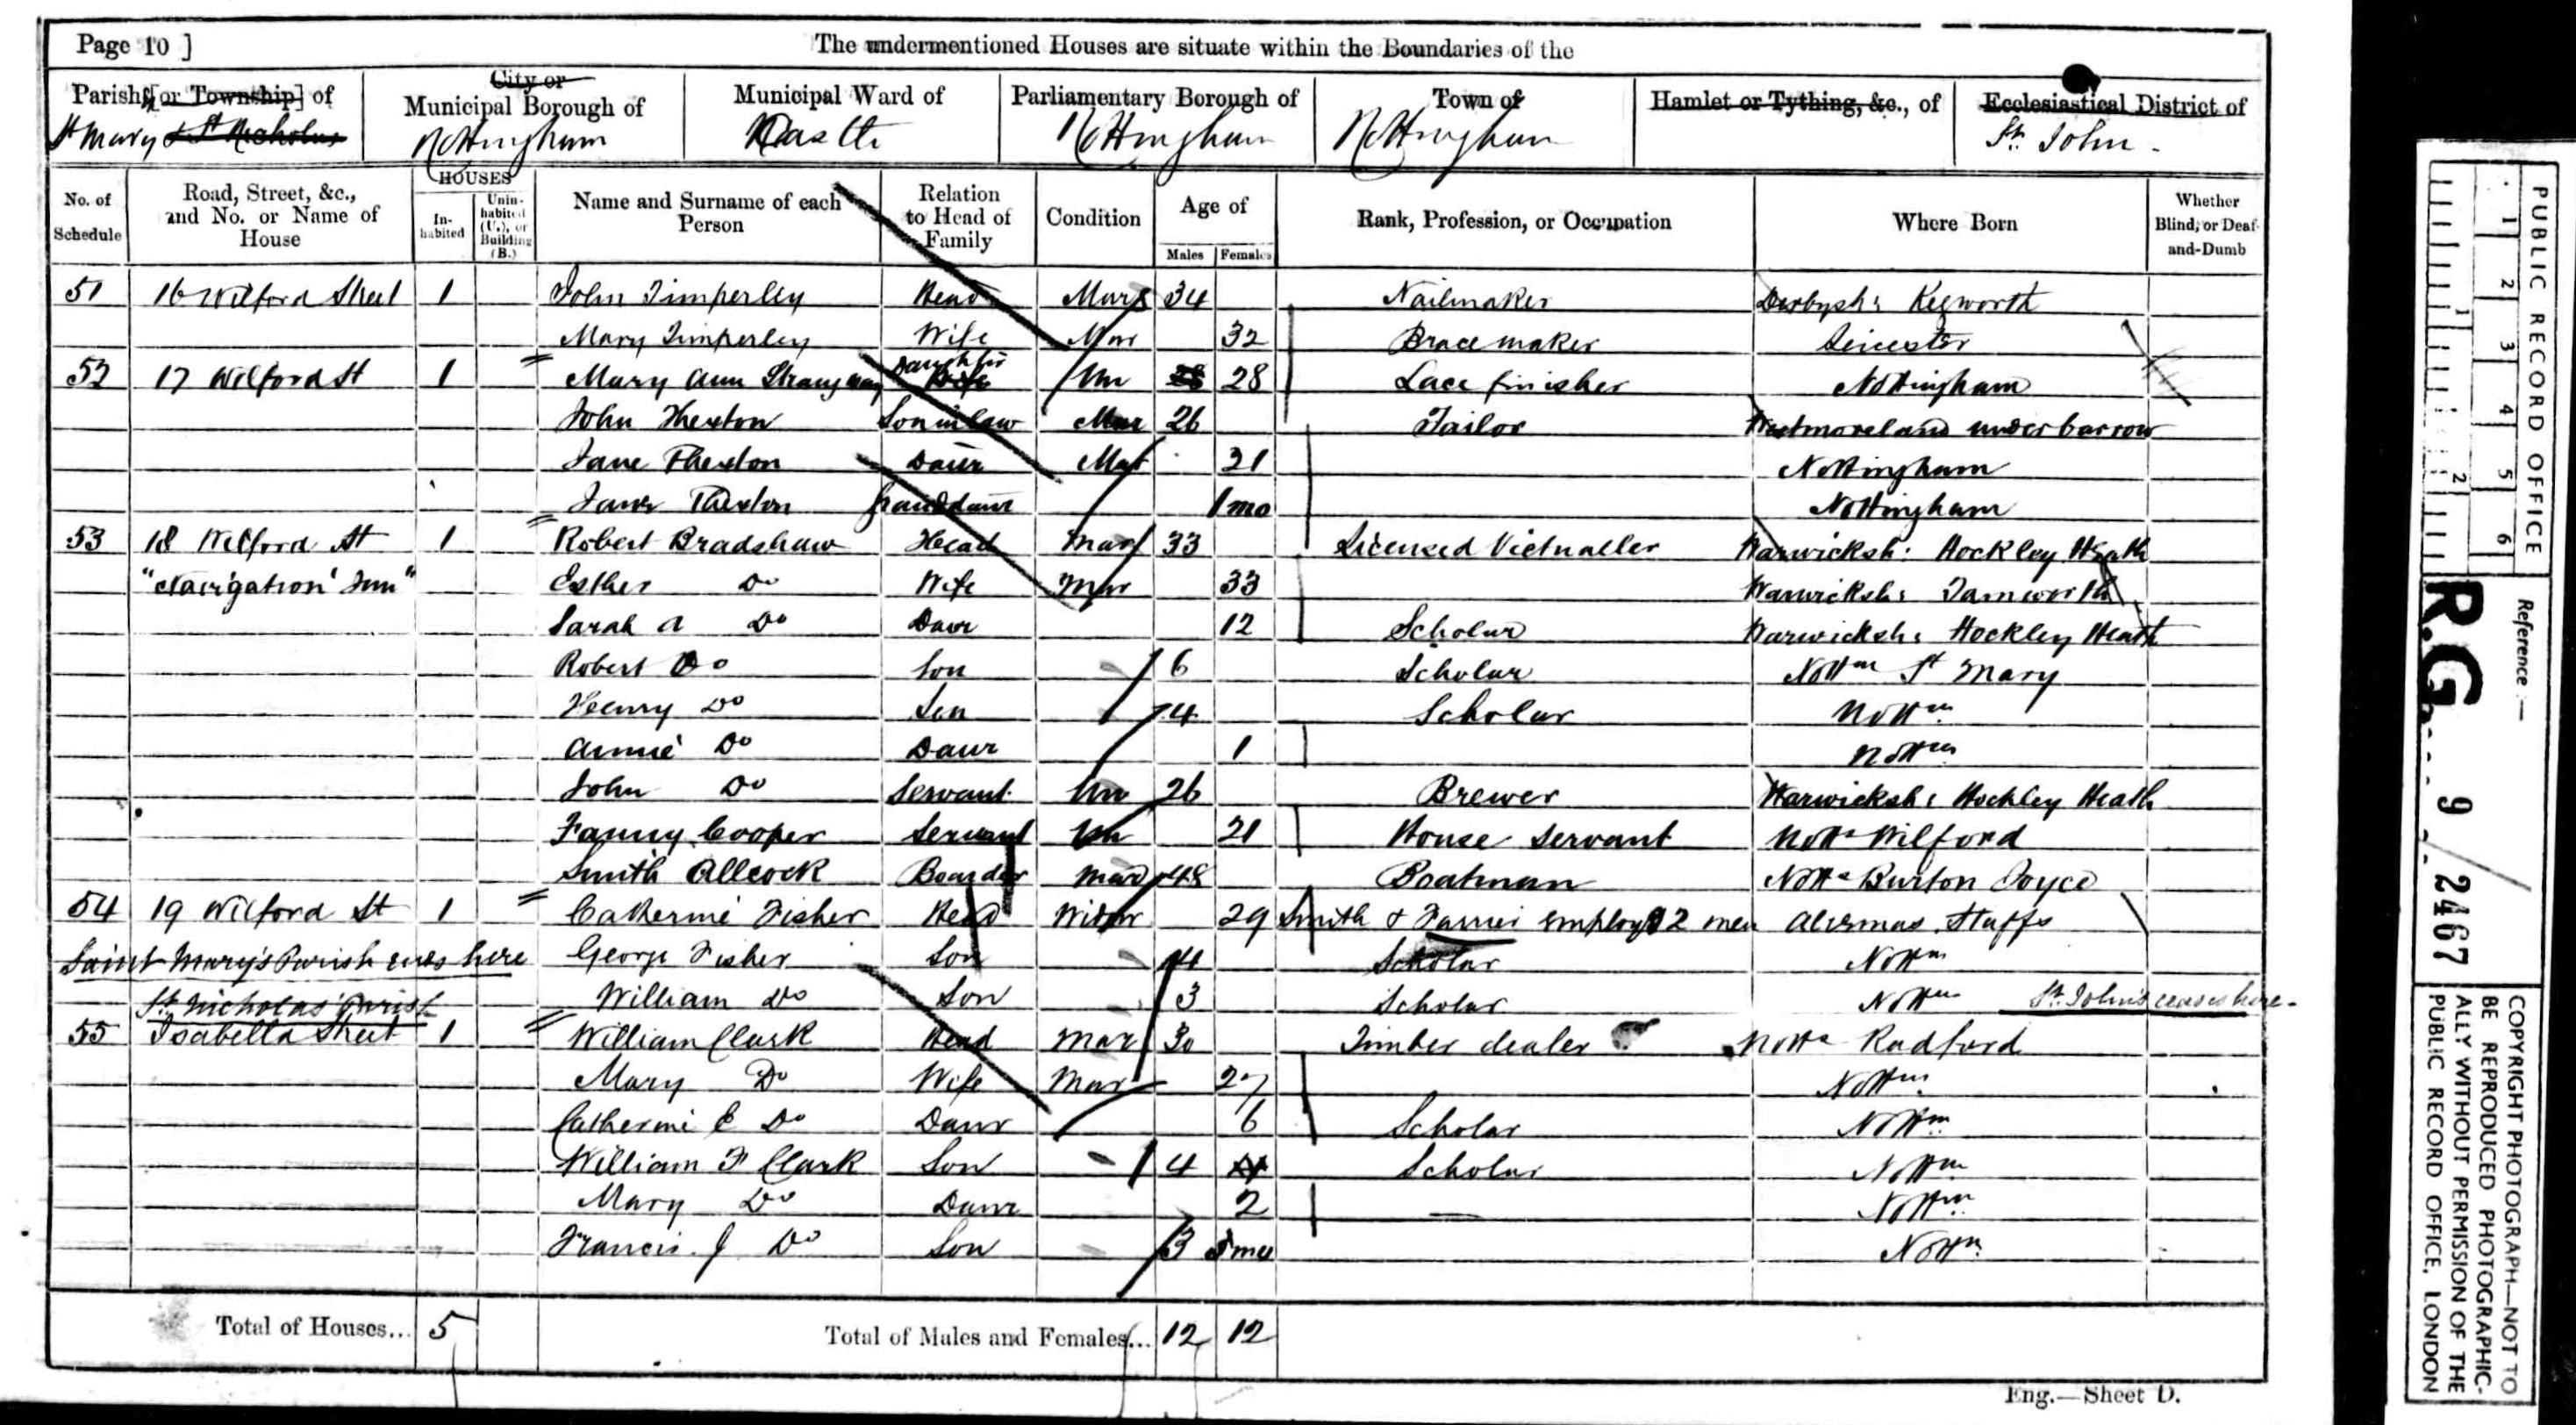 Page 10 ]
The undermentioned Houses are situate within the Boundaries of the
Parish [or Township] of
St Mary & St Nicholas
City or
Municipal Borough of
Nottingham
Municipal Ward of
Castle
Parliamentary Borough of
Nottingham
Town of
Nottingham
Hamlet or Tything, &c., of
Ecclesiastical District of
St. John.
No. of Schedule
Road, Street, &c., and No. or Name of House
HOUSES
In-habited
Unin-habited (U.), or Building (B.)
Name and Surname of each Person
Relation to Head of Family
Condition
Age of
Males
Females
Rank, Profession, or Occupation
Where Born
Whether Blind, or Deaf-and-Dumb
51 16 Wilford Street 1 John Timperley Head Mar 34 Nailmaker Derbysh: Kegworth
Mary Timperley Wife Mar 32 Brace maker Leicester
52 17 Wilford St 1 Mary Ann Daughter Un 28 Lace finisher Nottingham
John Thexton Son in law Mar 26 Tailor Westmoreland underbarrow
Jane Thexton Daur Mar 21 Nottingham
Thexton Granddaur 1 mo Nottingham
53 18 Wilford St 1 Robert Bradshaw Head Mar 33 Licensed Victualler Warwicksh: Hockley Heath
"Navigation Inn" Esther Do Wife Mar 33 Warwicksh: Tamworth
Sarah A Do Daur 12 Scholar Warwicksh: Hockley Heath
Robert Do Son 6 Scholar Nottm St Mary
Henry Do Son 4 Scholar Nottm
Annie Do Daur 1 Nottm
John Do Servant Un 26 Brewer Warwicksh: Hockley Heath
Fanny Cooper Servant Un 21 House Servant Notts Wilford
Smith Allcock Boarder Mar 48 Boatman Notts Burton Joyce
54 19 Wilford St 1 Catherine Fisher Head Widow 29 Smith & Farrier employg 2 men Staffs
Saint Mary's Parish ends here George Fisher Son 4 Scholar Nottm
St Nicholas Parish William Do Son 3 Scholar Nottm St. John's ceases here.
55 Isabella Street 1 William Clark Head Mar 30 Timber dealer Notts Radford
Mary Do Wife Mar 27 Nottm
Catherine E Do Daur 6 Scholar Nottm
William F Clark Son 4 Scholar Nottm
Mary Do Daur 2 Nottm
Francis J Do Son 3 Nottm
Total of Houses... 5
Total of Males and Females... 12 12
Eng.—Sheet D.
PUBLIC RECORD OFFICE
1 2 3 4 5 6
1 2
Reference :—
R.G. 9 / 2467
COPYRIGHT PHOTOGRAPH—NOT TO
BE REPRODUCED PHOTOGRAPHIC-
ALLY WITHOUT PERMISSION OF THE
PUBLIC RECORD OFFICE, LONDON